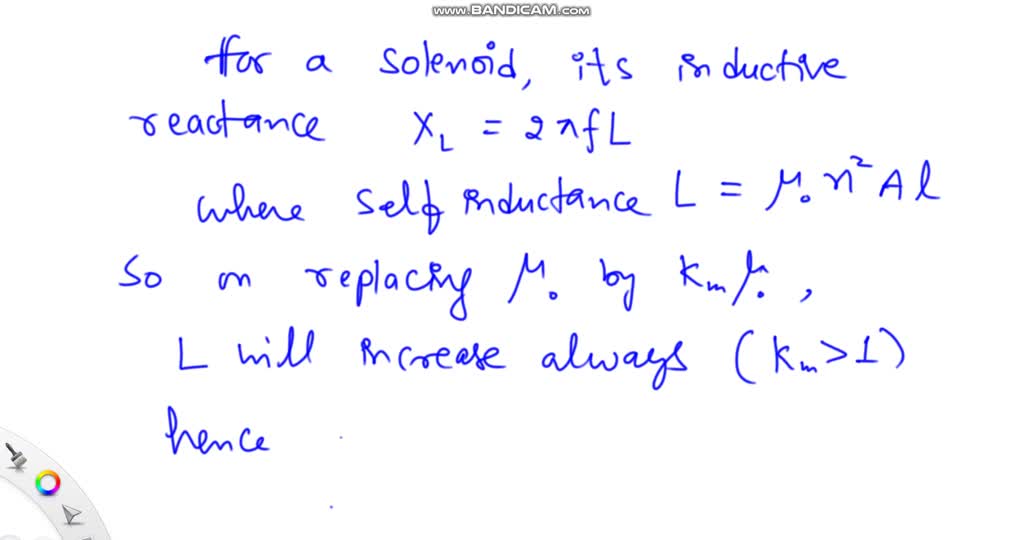 www.BANDICAM.com
for a solenoid, its inductive
reactance X_L = 2πfL
where self inductance L = μ₀n²Al
So on replacing μ₀ by k_m μ₀,
L will increase always (k_m>1)
hence